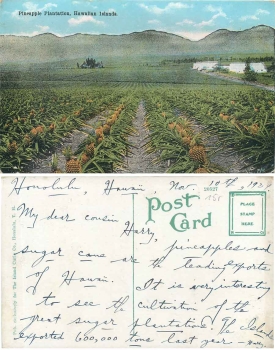 Pineapple Plantation, Hawaiian Islands.
Honolulu, Hawaii, Nov. 19th, 193
My dear cousin
Harry,
POST
CARD
PLACE
STAMP
HERE
pineapples and
sugar cane are the leading exports
of Hawaii. It is very interesting
to see the cultivation of the
great sugar plantations. The Islands
exported 600,000 tons last year.